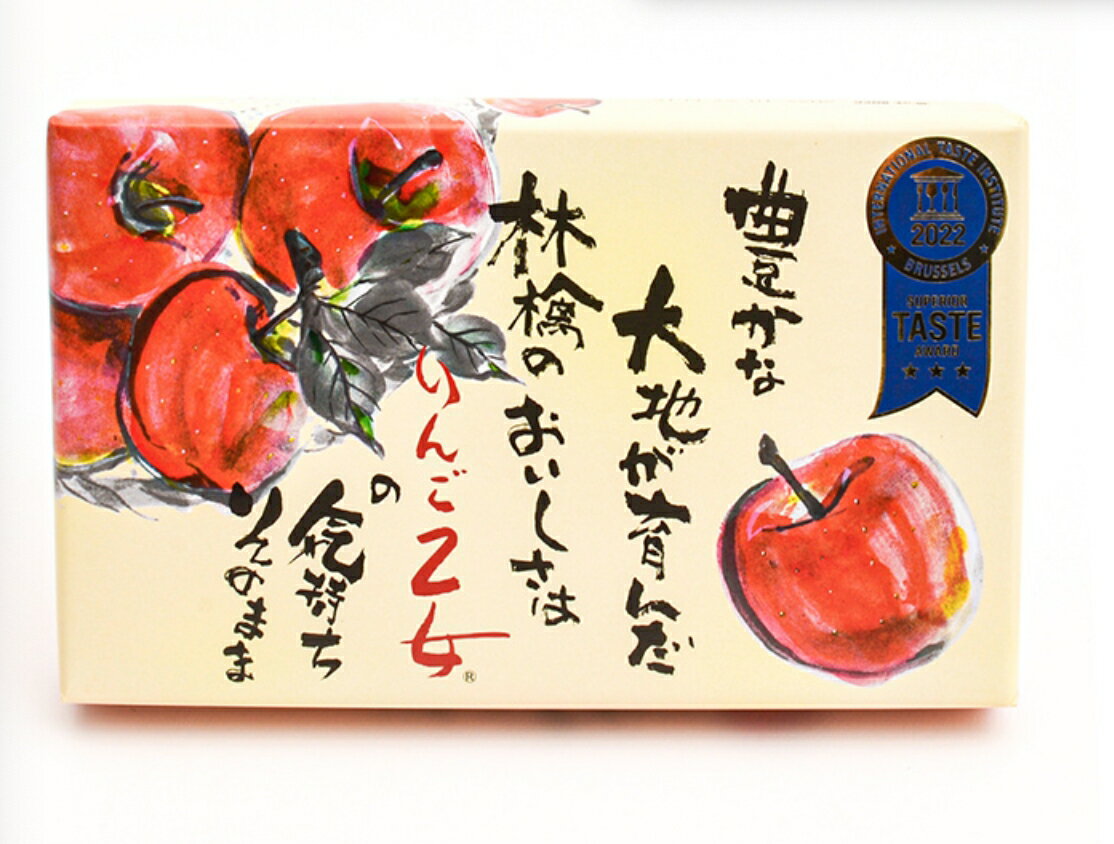 豊かな
大地が育んだ
林檎のおいしさは
りんご乙女®
の
気持ち
そのまま
INTERNATIONAL TASTE INSTITUTE
2022
BRUSSELS
SUPERIOR
TASTE
AWARD